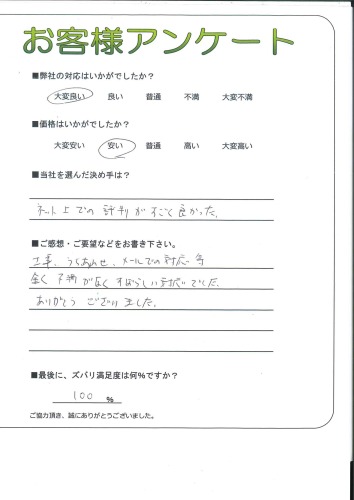 お客様アンケート
■弊社の対応はいかがでしたか？
大変良い 良い 普通 不満 大変不満
■価格はいかがでしたか？
大変安い 安い 普通 高い 大変高い
■当社を選んだ決め手は？
ネット上での評判がすごく良かった。
■ご感想・ご要望などをお書き下さい。
工事、うちあわせ、メールでの対応等
全く不満がなくすばらしい対応でした。
ありがとうございました。
■最後に、ズバリ満足度は何%ですか？
100 %
ご協力頂き、誠にありがとうございました。